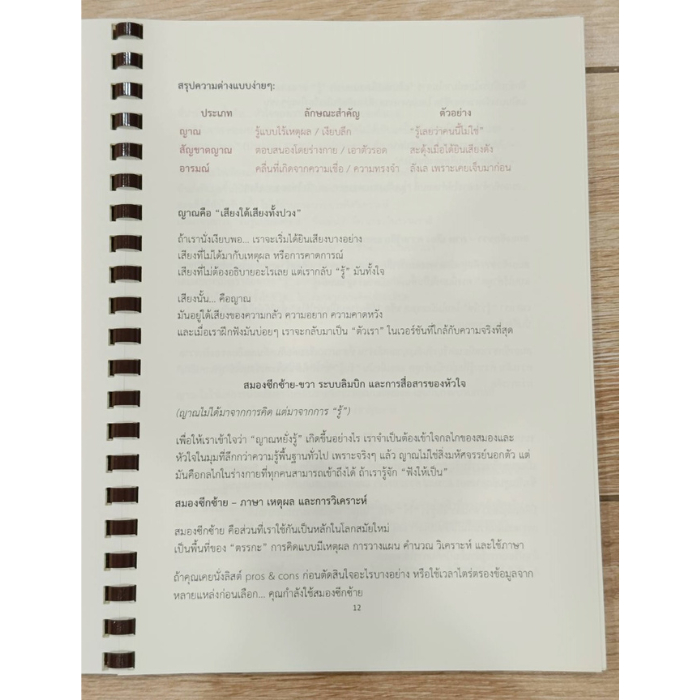 สรุปความต่างแบบง่ายๆ:
ประเภท ลักษณะสำคัญ ตัวอย่าง
ญาณ รู้แบบไร้เหตุผล / เงียบลึก "รู้เลยว่าคนนี้ไม่ใช่"
สัญชาตญาณ ตอบสนองโดยร่างกาย / เอาตัวรอด สะดุ้งเมื่อได้ยินเสียงดัง
อารมณ์ คลื่นที่เกิดจากความเชื่อ / ความทรงจำ ลังเล เพราะเคยเจ็บมาก่อน
ญาณคือ "เสียงใต้เสียงทั้งปวง"
ถ้าเรานั่งเงียบพอ... เราจะเริ่มได้ยินเสียงบางอย่าง
เสียงที่ไม่ได้มากับเหตุผล หรือการคาดการณ์
เสียงที่ไม่ต้องอธิบายอะไรเลย แต่เรากลับ "รู้" มันทั้งใจ
เสียงนั้น... คือญาณ
มันอยู่ใต้เสียงของความกลัว ความอยาก ความคาดหวัง
และเมื่อเราฝึกฟังมันบ่อยๆ เราจะกลับมาเป็น "ตัวเรา" ในเวอร์ชันที่ใกล้กับความจริงที่สุด
สมองซีกซ้าย-ขวา ระบบลิมบิก และการสื่อสารของหัวใจ
(ญาณไม่ได้มาจากการคิด แต่มาจากการ "รู้")
เพื่อให้เราเข้าใจว่า "ญาณหยั่งรู้" เกิดขึ้นอย่างไร เราจำเป็นต้องเข้าใจกลไกของสมองและ
หัวใจในมุมที่ลึกกว่าความรู้พื้นฐานทั่วไป เพราะจริงๆ แล้ว ญาณไม่ใช่สิ่งมหัศจรรย์นอกตัว แต่
มันคือกลไกในร่างกายที่ทุกคนสามารถเข้าถึงได้ ถ้าเรารู้จัก "ฟังให้เป็น"
สมองซีกซ้าย – ภาษา เหตุผล และการวิเคราะห์
สมองซีกซ้าย คือส่วนที่เราใช้กันเป็นหลักในโลกสมัยใหม่
เป็นพื้นที่ของ "ตรรกะ" การคิดแบบมีเหตุผล การวางแผน คำนวณ วิเคราะห์ และใช้ภาษา
ถ้าคุณเคยนั่งลิสต์ pros & cons ก่อนตัดสินใจอะไรบางอย่าง หรือใช้เวลาไตร่ตรองข้อมูลจาก
หลายแหล่งก่อนเลือก... คุณกำลังใช้สมองซีกซ้าย
12